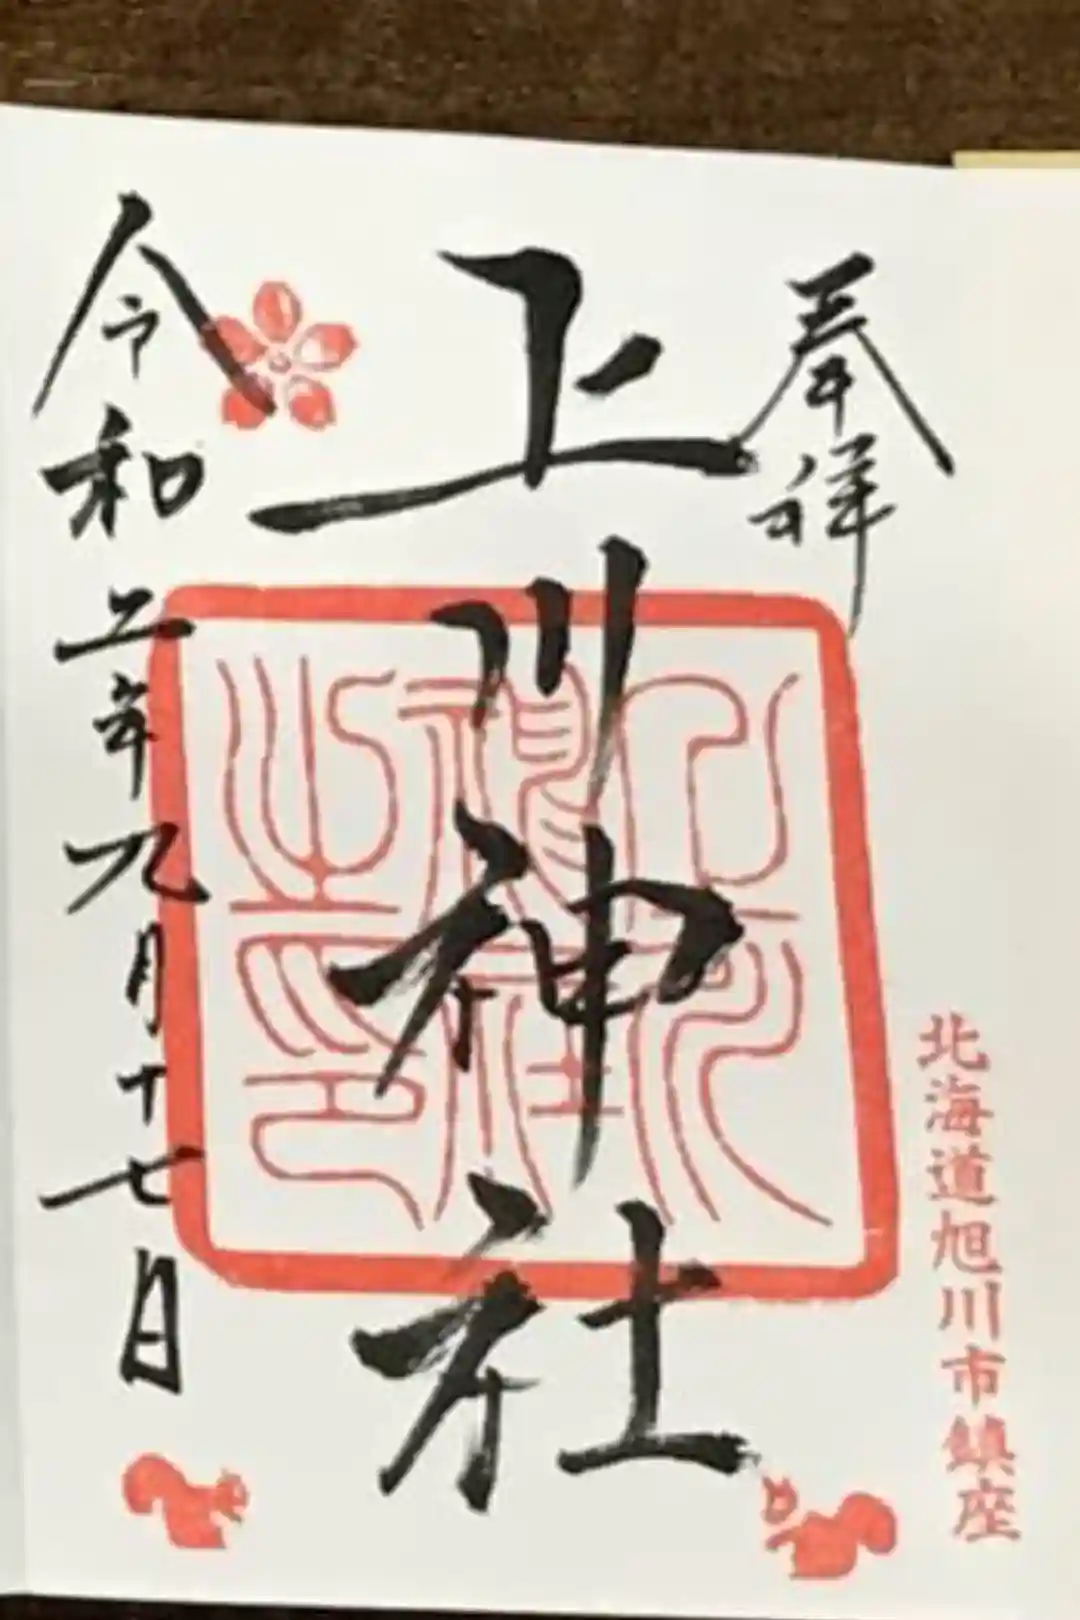 奉拝
北海道旭川市鎮座
上川神社
上川
神社
之印
令和二年九月十七日